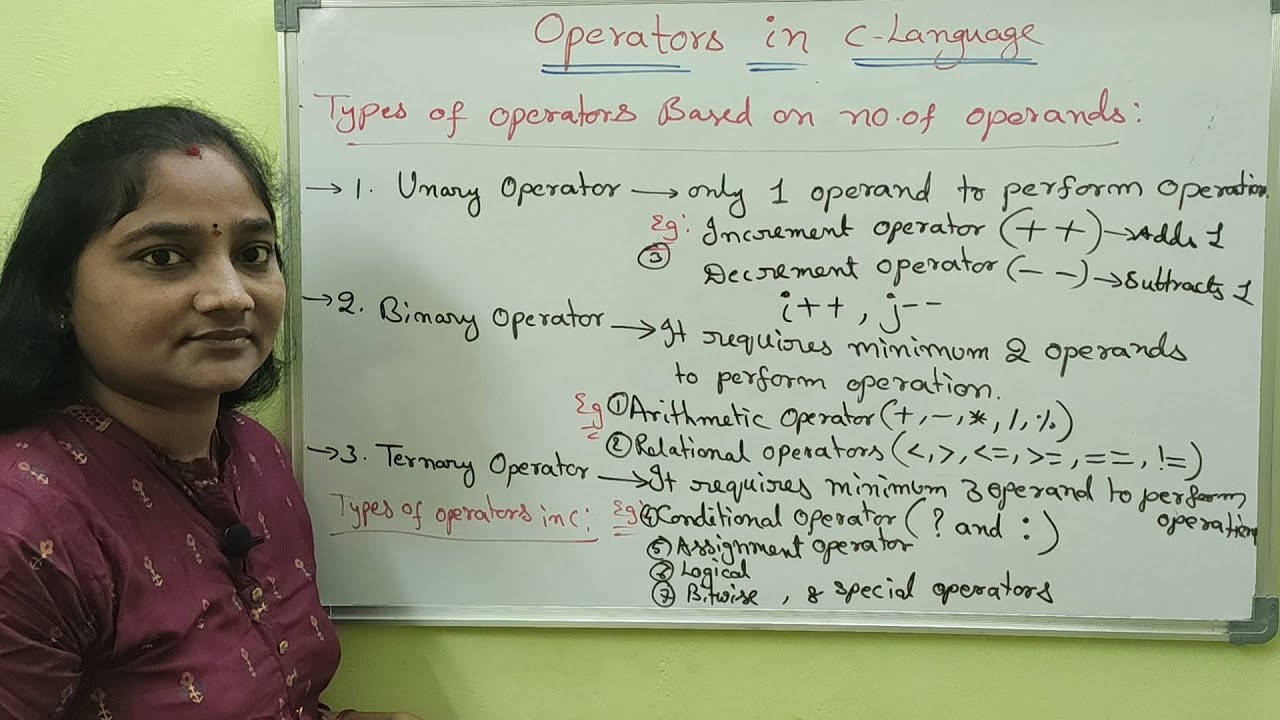 Operators in C-Language
Types of operators Based on no.of operands:
→ 1. Unary Operator → only 1 operand to perform operation
Eg: Increment operator (++) → Adds 1
③ Decrement operator (--) → Subtracts 1
i++, j--
→ 2. Binary Operator → It requires minimum 2 operands
to perform operation.
Eg ① Arithmetic Operator (+, -, *, /, %)
② Relational operators (<, >, <=, >=, ==, !=)
→ 3. Ternary Operator → It requires minimum 3 operand to perform
operation
Types of operators in C: Eg ④ Conditional Operator (? and :)
⑤ Assignment operator
Logical
⑦ Bitwise, 8 special operators